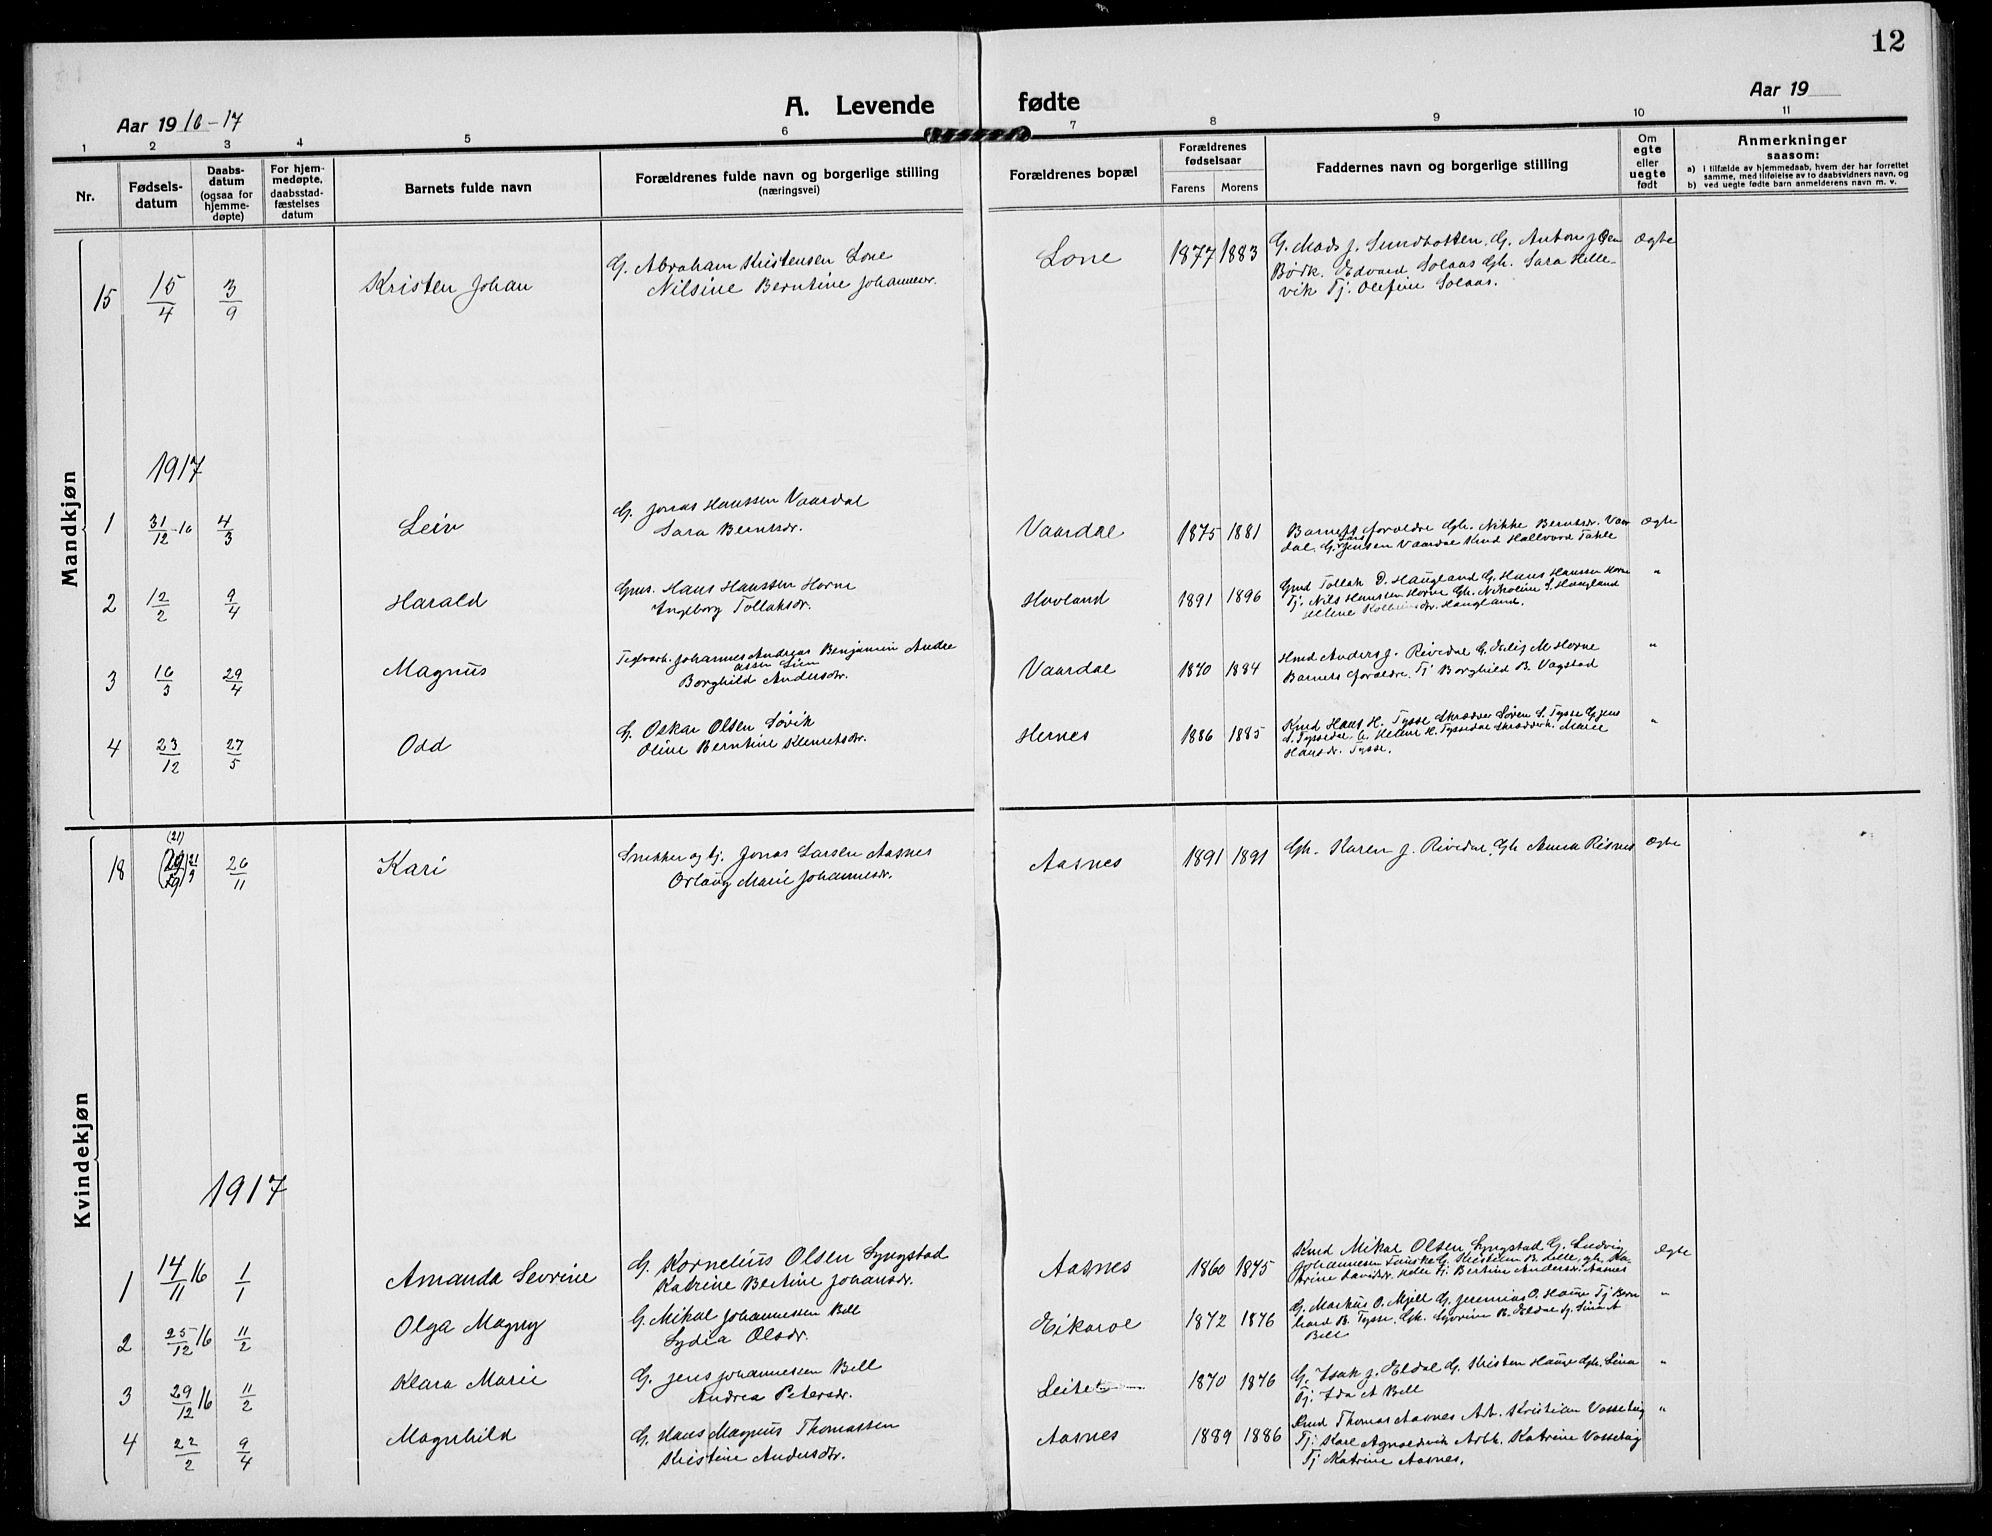 12
Aar 1916-17
A. Levende fødte
Aar 19
1 2 3 4 5 6 7 8 9 10 11
Nr.
Fødsels-
datum
Daabs-
datum
(ogsaa for
hjemme-
døpte)
For hjem-
medøpte,
daabsstad-
fæstelses
datum
Barnets fulde navn
Forældrenes fulde navn og borgerlige stilling
(næringsvei)
Forældrenes bopæl
Forældrenes
fødselsaar
Farens Morens
Faddernes navn og borgerlige stilling
Om
egte
eller
uegte
født
Anmerkninger
saasom:
a) I tilfælde av hjemmedaab, hvem der har forrettet
samme, med tilføielse av to daabsvidners navn, og
b) ved uegte fødte barn anmelderens navn m. v.
Mandkjøn
15 15/4 3/9 Kristen Johan G. Abraham Kristensen Lone Lone 1877 1883 G. Mads J. Sundbotten, G. Anton J. Ægte
Nilsine Berntine Johannesdr. Børk. Edvard Solaas Gh. Sara Helle-
vik Tj. Olefine Solaas.
1917
1 31/12-16 4/3 Leiv G. Jonas Hanssen Vaardal Vaardal 1875 1881 Barnets forældre Gh. Nikke Berntsdr. Vaar Ægte
Sara Berntsdr. dal G. Lars Jensen Vaardal Knd Hallvard Tahle
2 12/2 9/4 Harald Gms. Hans Hanssen Horne Hovland 1891 1896 Gmd Tollak D. Haugland G. Hans Hanssen Horne "
Ingeborg Tollaksdr. Tj. Nils Hanssen Horne Gh. Nikoline S. Haugland
Helene Haugland.
3 16/3 29/4 Magnus Teglverk. Johannes Andreas Benjamin Andre Vaardal 1870 1884 Hmd Anders J. Rivedal G. M Horne "
assen Lien Barnets forældre. Tj Borghild B. Vagstad
Borghild Andersdr.
4 23/12 27/5 Odd G. Oskar Olsen Søvik Hernes 1886 1885 Knd Hans H. Tysse Skrædder Søren S. Tysse G Jens "
Oline Berntine Klemetsdr. S. Tyssedal G Helene H. Tyssedal Skrædderk. Marie
Hansdr. Tysse.
Kvindekjøn
(21)
18 21/9 26/11 Kari Snekker og tj. Jonas Larsen Aasnes Aasnes 1891 1891 Gh. Karen J. Rivedal, Gh Anna Risnes Ægte
Orlaug Marie Johannesdr.
1917
1 14/11 16 1/1 Amanda Sevrine G. Kornelius Olsen Lyngstad Aasnes 1860 1875 Knd Mikal Olsen Lyngstad G. Ludvig Ægte
Katrine Bertine Johansdr. Johannesen Fauske G. Kristian B. Lelle, gh. Ka-
trine Davidsdr. Tj. Bertine Andersdr. Aasnes
2 25/12 16 11/2 Olga Magny G. Mikal Johannessen Bell Eikarol 1872 1876 G. Markus O. Mjell G. Jeremias O. Hauge Tj Bern "
Lydia Olsdr. hard B. Tysse. Gh. Syvrine B. Eldal Tj. Sina A
Bell
3 29/12 16 11/2 Klara Marie G. Jens Johannessen Bell Leitet 1870 1876 G. Isak J. Eldal G. Kristen Hauge Gh. Lina "
Andrea Petersdr. Tj. Ida A Bell
4 22/2 9/4 Magnhild G. Hans Magnus Thomassen Aasnes 1889 1886 Knd Thomas Aasnes Arb. Kristian Vassetøg "
Kristine Andersdtr. Tj. Karl Agnaldvik Arbk. Katrine Vassetøg
Tj Katrine Aasnes.